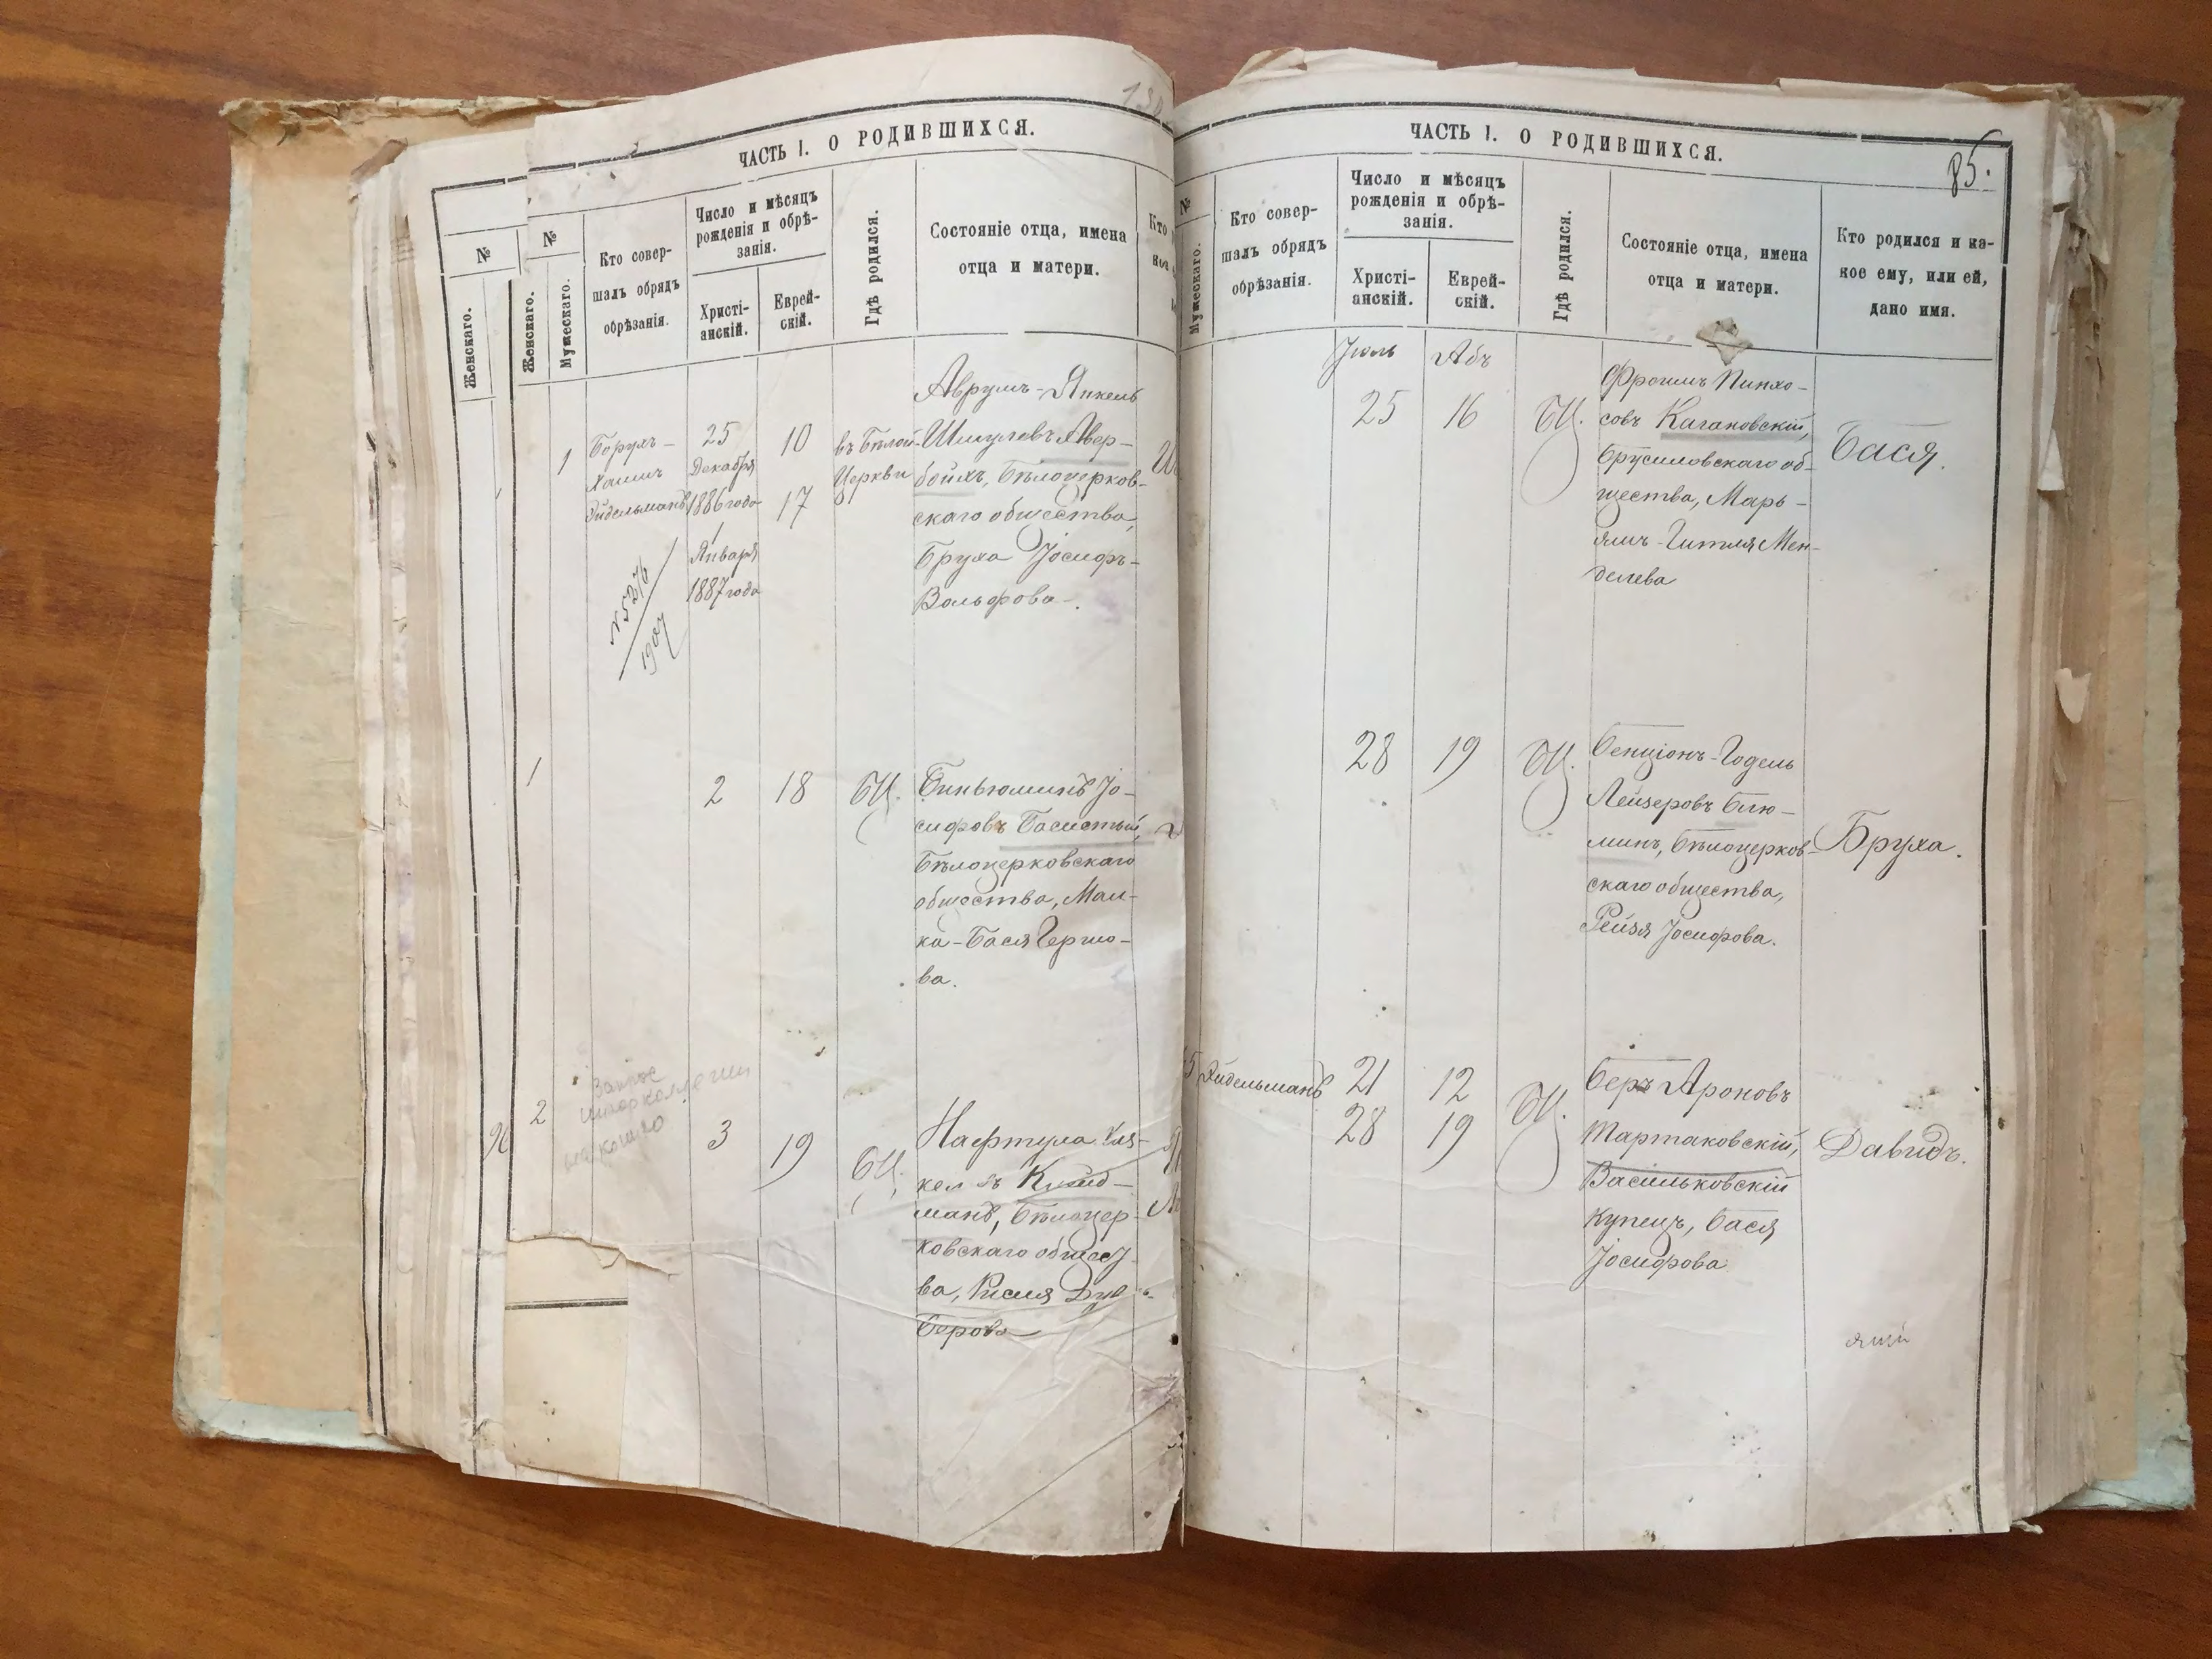 ЧАСТЬ I. О РОДИВШИХСЯ.
№
Женскаго.
№
Женскаго.
Мужескаго.
Кто совер-
шалъ обрядъ
обрѣзанія.
Число и мѣсяцъ
рожденія и обрѣ-
занія.
Христі-
анскій.
Еврей-
скій.
Гдѣ родился.
Состояніе отца, имена
отца и матери.
Кто
1
Борухъ-
Хаимъ
Эйдельманъ
25
Декабря
1886 года
1
Января
1887 года
10
17
въ Бѣлой-
Церкви
Аврумъ-Янкель
Шмулевъ Авер-
бойхъ, Бѣлоцерков-
скаго общества,
Бруха Іосифъ-
Вольфова.
№5276
1907
1
2
18
БЦ.
Биньюминъ Іо-
сифовъ Басистый,
Бѣлоцерковскаго
общества, Мал-
ка-Бася Гершо-
ва.
96
2
3
19
БЦ.
Нафтула Хас-
келевъ
манъ, Бѣлоцер-
ковскаго общест
ва, Рисия Дув
Берова
ЧАСТЬ I. О РОДИВШИХСЯ.
85.
№
Мужескаго.
Кто совер-
шалъ обрядъ
обрѣзанія.
Число и мѣсяцъ
рожденія и обрѣ-
занія.
Христі-
анскій.
Еврей-
скій.
Гдѣ родился.
Состояніе отца, имена
отца и матери.
Кто родился и ка-
кое ему, или ей,
дано имя.
Іюль
Абъ
25
16
БЦ.
Фроимъ Пинхо-
совъ Кагановскій,
Брусиловскаго об-
щества, Марь-
ямъ-Гитля Мен-
делева
Бася.
28
19
БЦ.
Бенціонъ-Годель
Лейзеровъ Блю-
минъ, Бѣлоцерков-
скаго общества,
Рейзя Іосифова.
Бруха.
5
Эйдельманъ
21
28
12
19
БЦ.
Беръ Ароновъ
Тартаковскій,
Васильковскій
Купецъ, Бася
Іосифова
Давидъ.